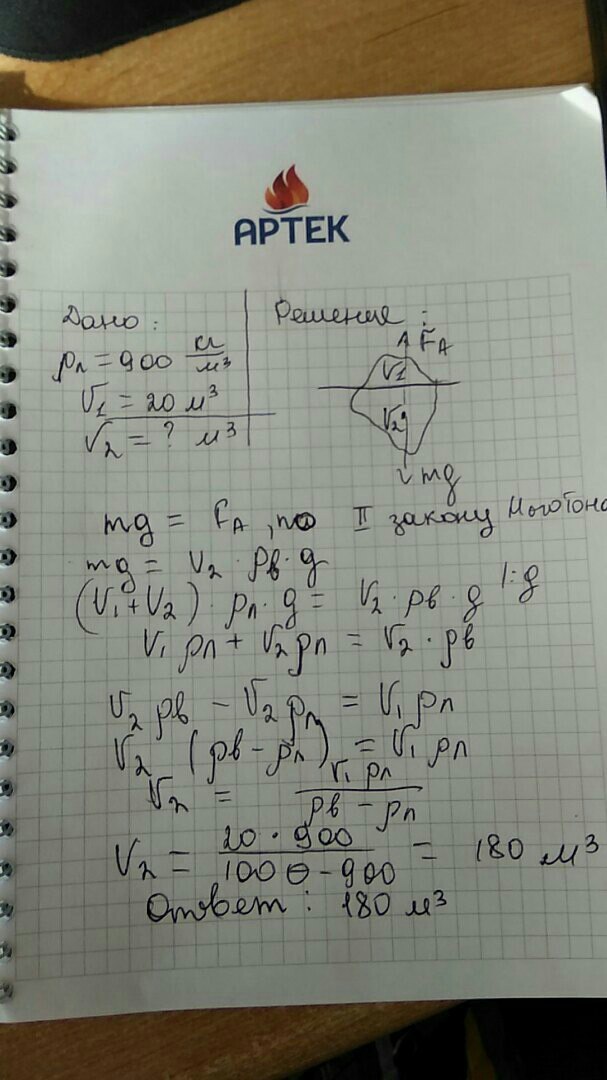 АРТЕК
Дано:
ρл = 900 кг/м³
V₁ = 20 м³
V₂ = ? м³
Решение:
FA
V₁
V₂
mg
mg = FA, по II закону Ньютона
mg = V₂ · ρв · g
(V₁ + V₂) · ρл · g = V₂ · ρв · g |:g
V₁ ρл + V₂ ρл = V₂ · ρв
V₂ ρв - V₂ ρл = V₁ ρл
V₂ (ρв - ρл) = V₁ ρл
V₂ = V₁ ρл / ρв - ρл
V₂ = 20 · 900 / 1000 - 900 = 180 м³
Ответ: 180 м³